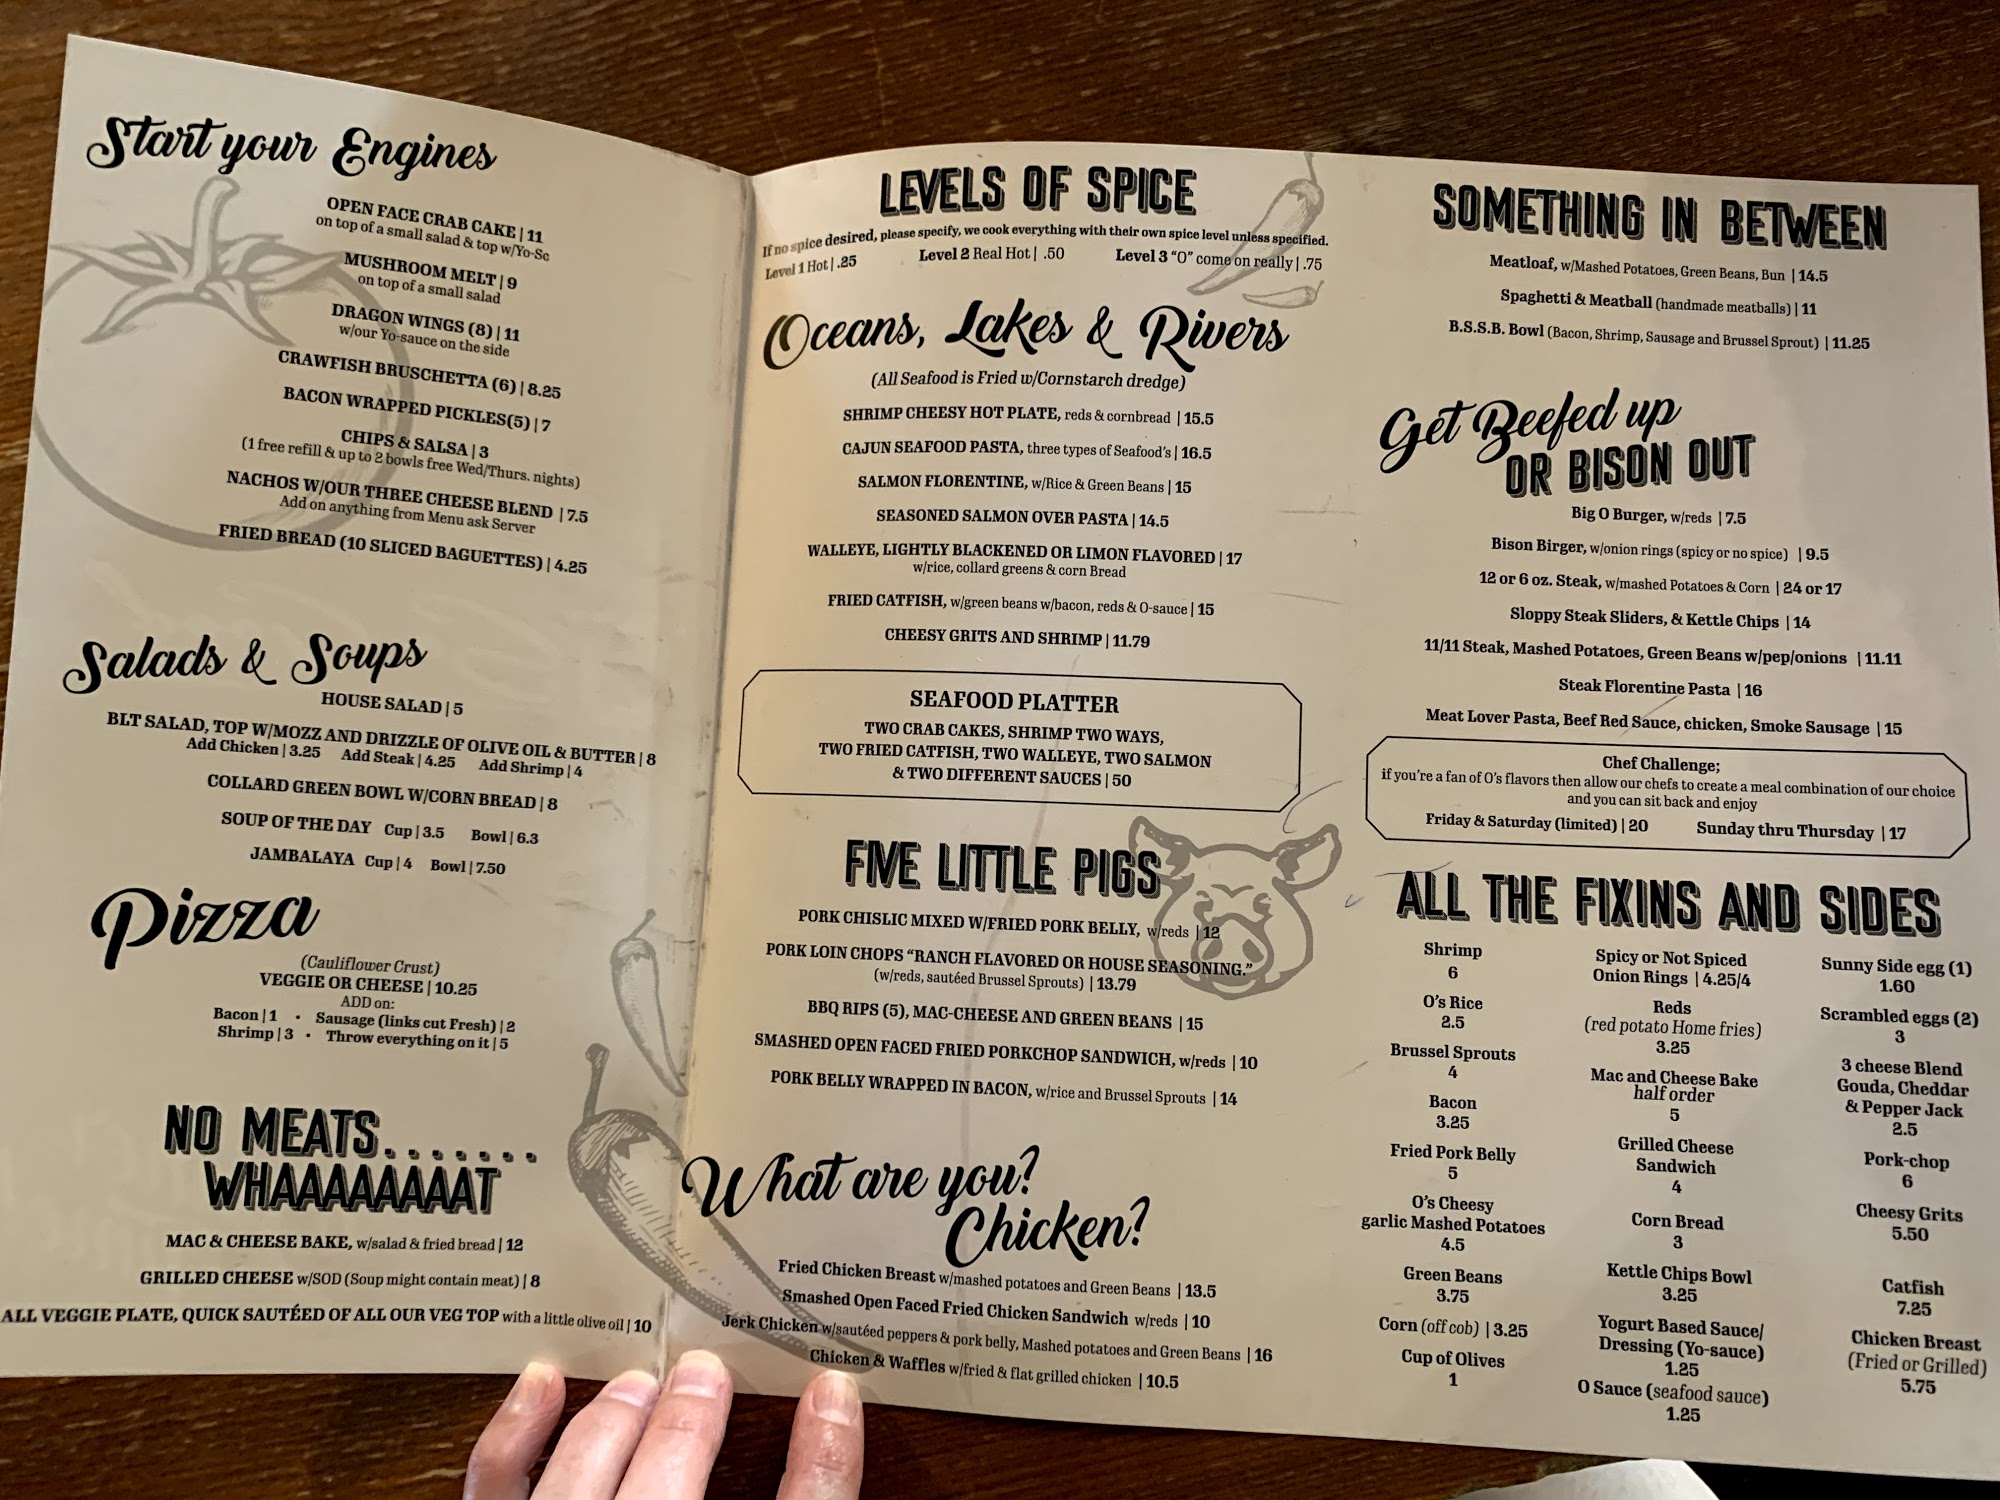 Start your Engines
OPEN FACE CRAB CAKE | 11
on top of a small salad & top w/Yo-Sc
MUSHROOM MELT | 9
on top of a small salad
DRAGON WINGS (8) | 11
w/our Yo-sauce on the side
CRAWFISH BRUSCHETTA (6) | 8.25
BACON WRAPPED PICKLES(5) | 7
CHIPS & SALSA | 3
(1 free refill & up to 2 bowls free Wed/Thurs. nights)
NACHOS W/OUR THREE CHEESE BLEND | 7.5
Add on anything from Menu ask Server
FRIED BREAD (10 SLICED BAGUETTES) | 4.25
Salads & Soups
HOUSE SALAD | 5
BLT SALAD, TOP W/MOZZ AND DRIZZLE OF OLIVE OIL & BUTTER | 8
Add Chicken | 3.25 Add Steak | 4.25 Add Shrimp | 4
COLLARD GREEN BOWL W/CORN BREAD | 8
SOUP OF THE DAY Cup | 3.5 Bowl | 6.3
JAMBALAYA Cup | 4 Bowl | 7.50
Pizza
(Cauliflower Crust)
VEGGIE OR CHEESE | 10.25
ADD on:
Bacon | 1 • Sausage (links cut Fresh) | 2
Shrimp | 3 • Throw everything on it | 5
NO MEATS.......
WHAAAAAAAAT
MAC & CHEESE BAKE, w/salad & fried bread | 12
GRILLED CHEESE w/SOD (Soup might contain meat) | 8
ALL VEGGIE PLATE, QUICK SAUTÉED OF ALL OUR VEG TOP with a little olive oil | 10
LEVELS OF SPICE
If no spice desired, please specify, we cook everything with their own spice level unless specified.
Level 1 Hot | .25 Level 2 Real Hot | .50 Level 3 "O" come on really | .75
Oceans, Lakes & Rivers
(All Seafood is Fried w/Cornstarch dredge)
SHRIMP CHEESY HOT PLATE, reds & cornbread | 15.5
CAJUN SEAFOOD PASTA, three types of Seafood's | 16.5
SALMON FLORENTINE, w/Rice & Green Beans | 15
SEASONED SALMON OVER PASTA | 14.5
WALLEYE, LIGHTLY BLACKENED OR LIMON FLAVORED | 17
w/rice, collard greens & corn Bread
FRIED CATFISH, w/green beans w/bacon, reds & O-sauce | 15
CHEESY GRITS AND SHRIMP | 11.79
SEAFOOD PLATTER
TWO CRAB CAKES, SHRIMP TWO WAYS,
TWO FRIED CATFISH, TWO WALLEYE, TWO SALMON
& TWO DIFFERENT SAUCES | 50
FIVE LITTLE PIGS
PORK CHISLIC MIXED W/FRIED PORK BELLY, w/reds | 12
PORK LOIN CHOPS "RANCH FLAVORED OR HOUSE SEASONING."
(w/reds, sautéed Brussel Sprouts) | 13.79
BBQ RIPS (5), MAC-CHEESE AND GREEN BEANS | 15
SMASHED OPEN FACED FRIED PORKCHOP SANDWICH, w/reds | 10
PORK BELLY WRAPPED IN BACON, w/rice and Brussel Sprouts | 14
What are you?
Chicken?
Fried Chicken Breast w/mashed potatoes and Green Beans | 13.5
Smashed Open Faced Fried Chicken Sandwich w/reds | 10
Jerk Chicken w/sautéed peppers & pork belly, Mashed potatoes and Green Beans | 16
Chicken & Waffles w/fried & flat grilled chicken | 10.5
SOMETHING IN BETWEEN
Meatloaf, w/Mashed Potatoes, Green Beans, Bun | 14.5
Spaghetti & Meatball (handmade meatballs) | 11
B.S.S.B. Bowl (Bacon, Shrimp, Sausage and Brussel Sprout) | 11.25
Get Beefed up
OR BISON OUT
Big O Burger, w/reds | 7.5
Bison Birger, w/onion rings (spicy or no spice) | 9.5
12 or 6 oz. Steak, w/mashed Potatoes & Corn | 24 or 17
Sloppy Steak Sliders, & Kettle Chips | 14
11/11 Steak, Mashed Potatoes, Green Beans w/pep/onions | 11.11
Steak Florentine Pasta | 16
Meat Lover Pasta, Beef Red Sauce, chicken, Smoke Sausage | 15
Chef Challenge;
if you're a fan of O's flavors then allow our chefs to create a meal combination of our choice
and you can sit back and enjoy
Friday & Saturday (limited) | 20 Sunday thru Thursday | 17
ALL THE FIXINS AND SIDES
Shrimp
6
O's Rice
2.5
Brussel Sprouts
4
Bacon
3.25
Fried Pork Belly
5
O's Cheesy
garlic Mashed Potatoes
4.5
Green Beans
3.75
Corn (off cob) | 3.25
Cup of Olives
1
Spicy or Not Spiced
Onion Rings | 4.25/4
Reds
(red potato Home fries)
3.25
Mac and Cheese Bake
half order
5
Grilled Cheese
Sandwich
4
Corn Bread
3
Kettle Chips Bowl
3.25
Yogurt Based Sauce/
Dressing (Yo-sauce)
1.25
O Sauce (seafood sauce)
1.25
Sunny Side egg (1)
1.60
Scrambled eggs (2)
3
3 cheese Blend
Gouda, Cheddar
& Pepper Jack
2.5
Pork-chop
6
Cheesy Grits
5.50
Catfish
7.25
Chicken Breast
(Fried or Grilled)
5.75